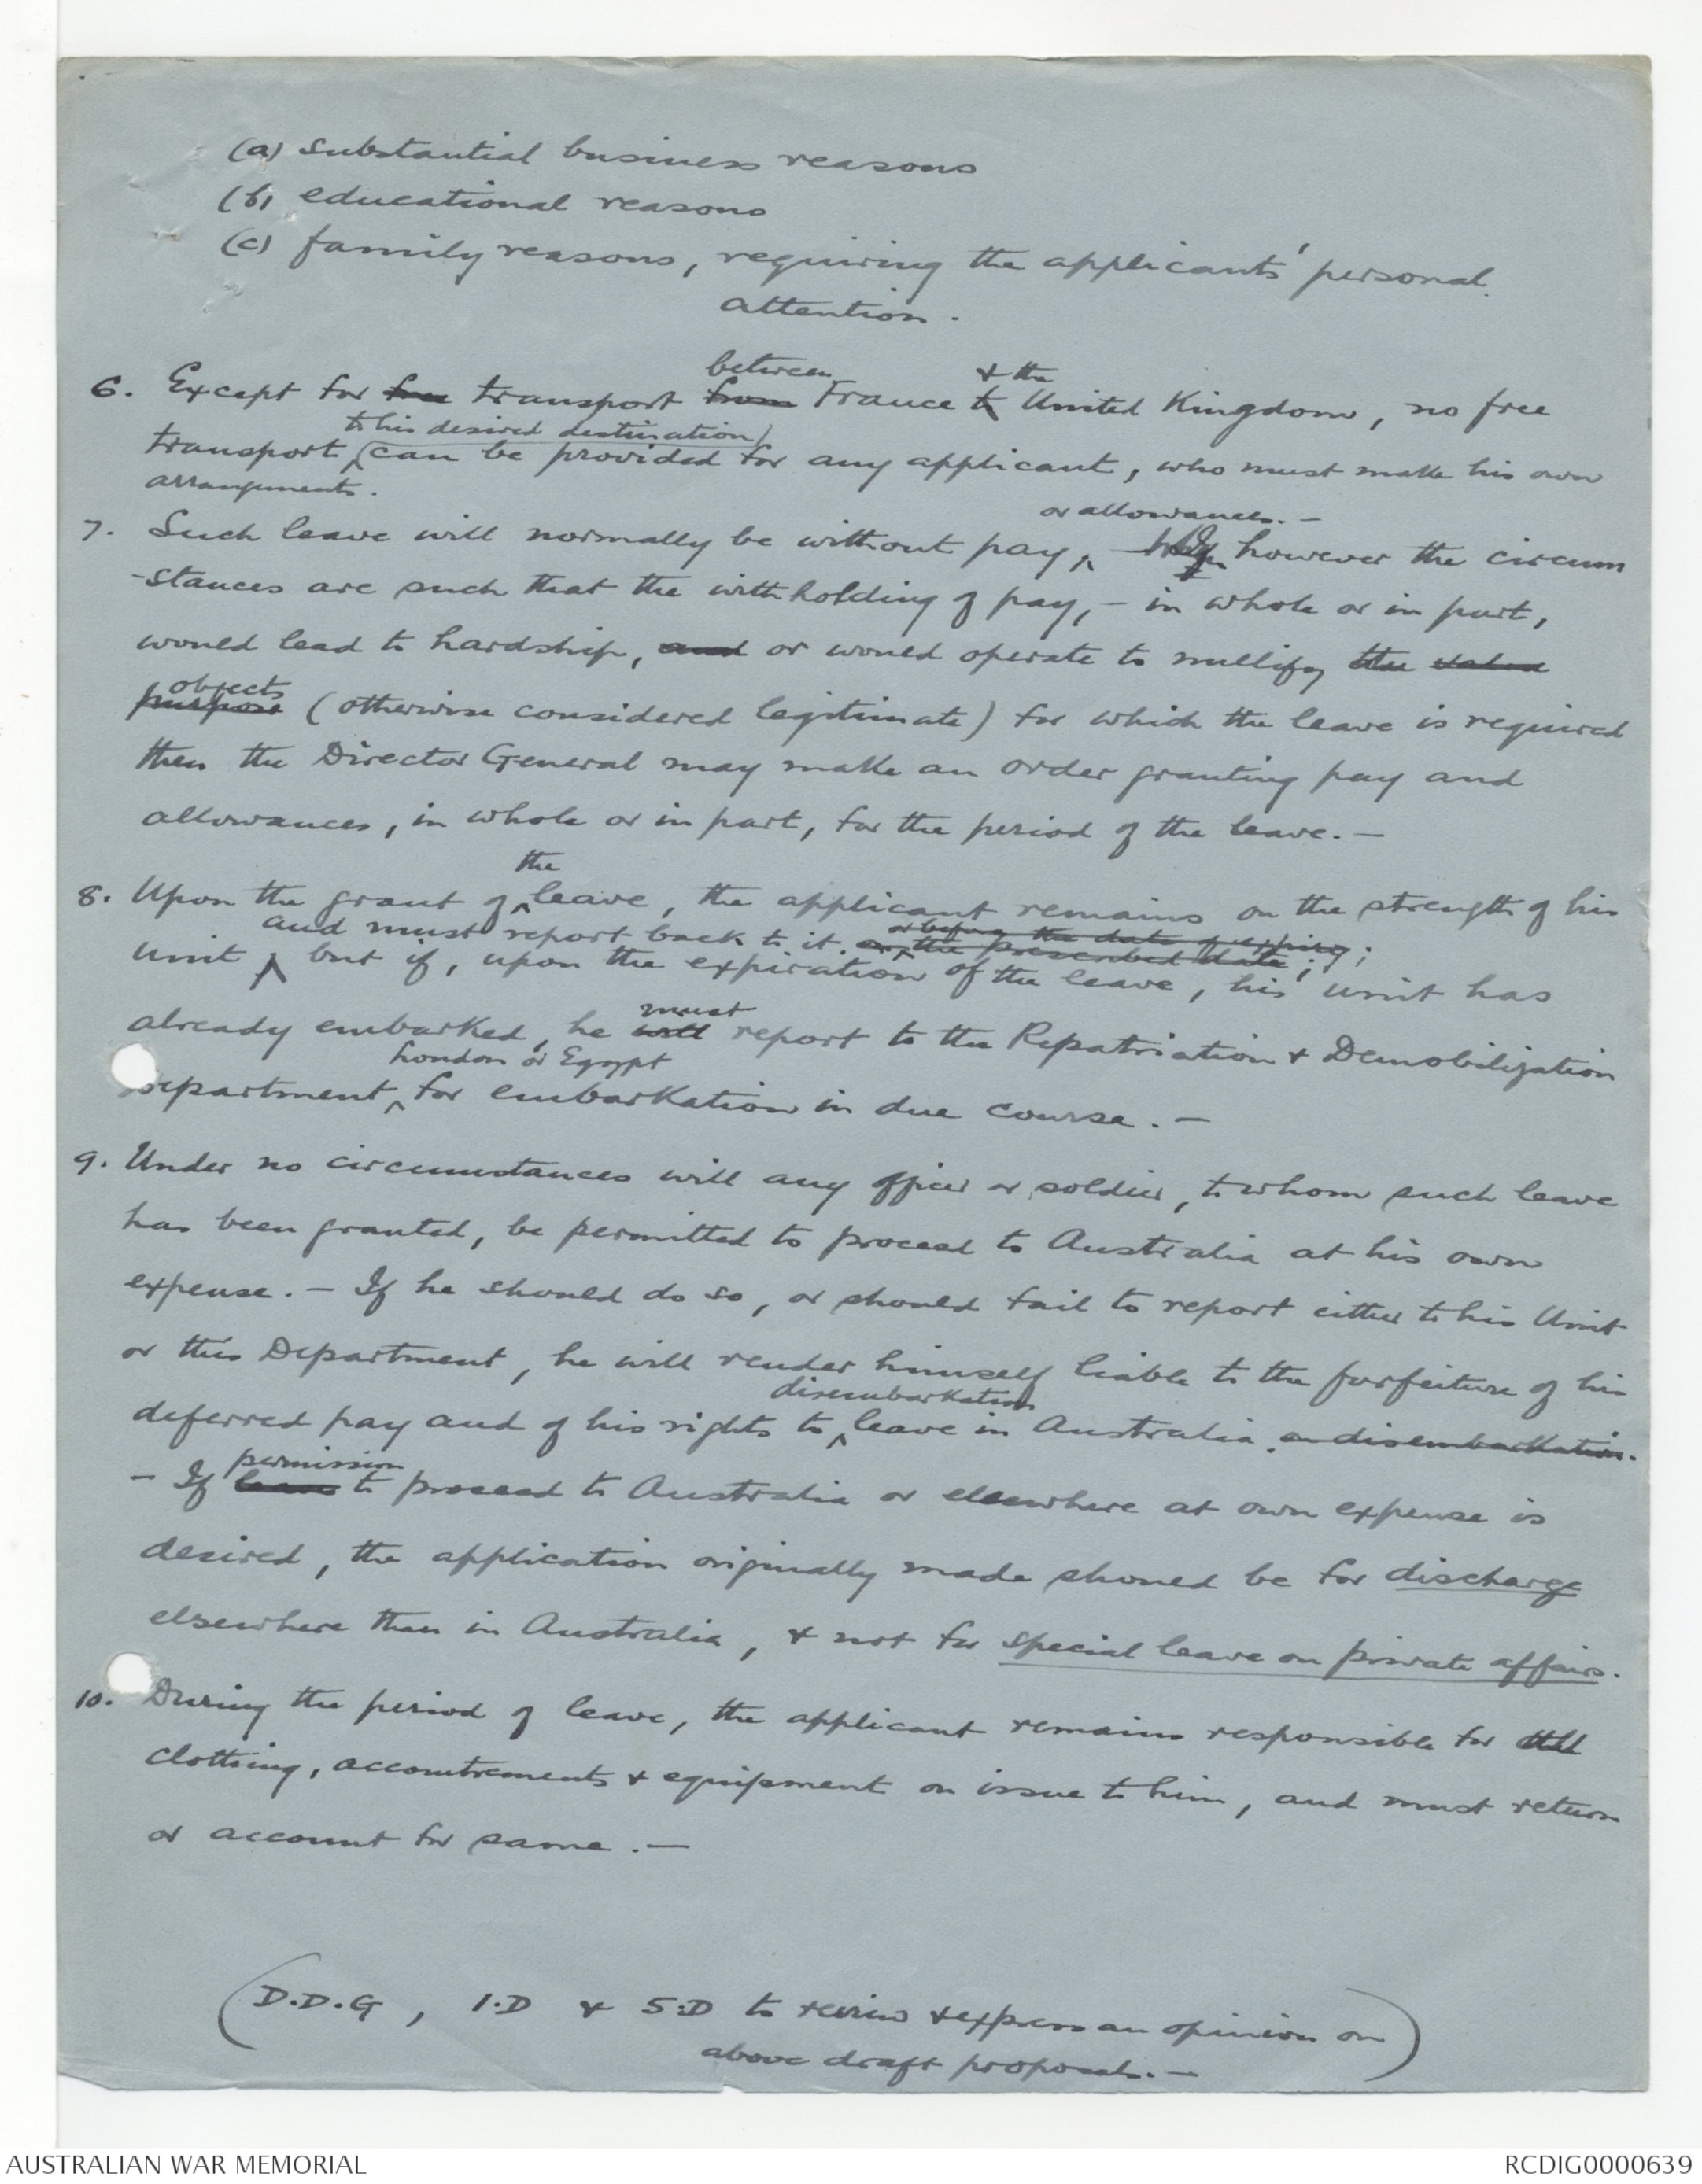 (a) substantial business reasons
(b) educational reasons
(c) family reasons, requiring the applicants' personal
attention.
between & the
6. Except for free transport from France to United Kingdom, no free
to his desired destination
transport, can be provided for any applicant, who must make his own
arrangements.
or allowances. -
7. Such leave will normally be without pay, If however the circum
-stances are such that the withholding of pay, - in whole or in part,
would lead to hardship, and or would operate to nullify the value
objects
purpose (otherwise considered legitimate) for which the leave is required
then the Director General may make an order granting pay and
allowances, in whole or in part, for the period of the leave. -
the
8. Upon the grant of leave, the applicant remains on the strength of his
or before the date of expiry;
and must report back to it. on the prescribed date;
unit but if, upon the expiration of the leave, his unit has
must
already embarked, he will report to the Repatriation & Demobilization
London or Egypt
Department, for embarkation in due course. -
9. Under no circumstances will any officer or soldier, to whom such leave
has been granted, be permitted to proceed to Australia at his own
expense. - If he should do so, or should fail to report either to his Unit
or this Department, he will render himself liable to the forfeiture of his
disembarkation
deferred pay and of his rights to leave in Australia. on disembarkation.
permission
- If leave to proceed to Australia or elsewhere at own expense is
desired, the application originally made should be for discharge
elsewhere than in Australia, & not for special leave on private affairs.
10. During the period of leave, the applicant remains responsible for all
clothing, accoutrements & equipment on issue to him, and must return
or account for same. -
(D.D.G, 1.D & 5.D to review & express an opinion on
above draft proposals. -)
AUSTRALIAN WAR MEMORIAL
RCDIG0000639